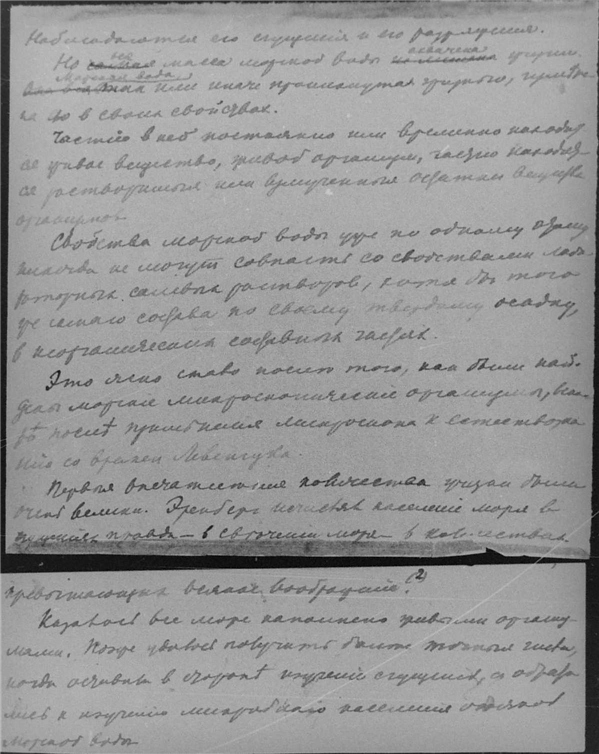 Наблюдаются его сгущенія и его разряженія.
Но вся масса морской воды охвачена жизнью.
Морская вода такъ или иначе проникнута
въ своихъ свойствахъ.
Частію в ней постоянно или временно находит
ся живое вещество, живой организм, частію находят
ся растворимыя или взмученныя остатки вещества
организмов
Свойства морской воды уже по одному этому
не могутъ совпасть со свойствами лабо
раторных солевых растворов, хотя бы того
же самаго состава по своему твердому осадку,
в неорганических составных частях.
Это ясно стало после того, как были най
дены морскіе микроскопическіе организмы,
послѣ примѣненія микроскопа к естествозна
нию со времен Левенгука.
Первыя впечатленія количества жизни были
очень велики. Эренберг исчислял населеніе моря в
правда – в свѣченіи моря – в количествах
превышающих всякое воображеніе. (2)
Казалось все море наполнено живыми организ
мами. Позже удалось получить болѣе точныя числа,
когда оставили в сторонѣ изученіе сгущеній, и обрати
лись к изученію микробнаго населенія
морской воды